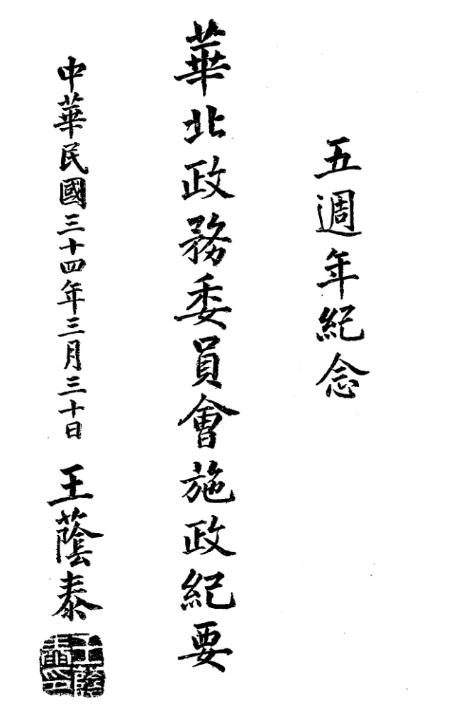 五週年紀念
華北政務委員會施政紀要
中華民國三十四年三月三十日 王蔭泰